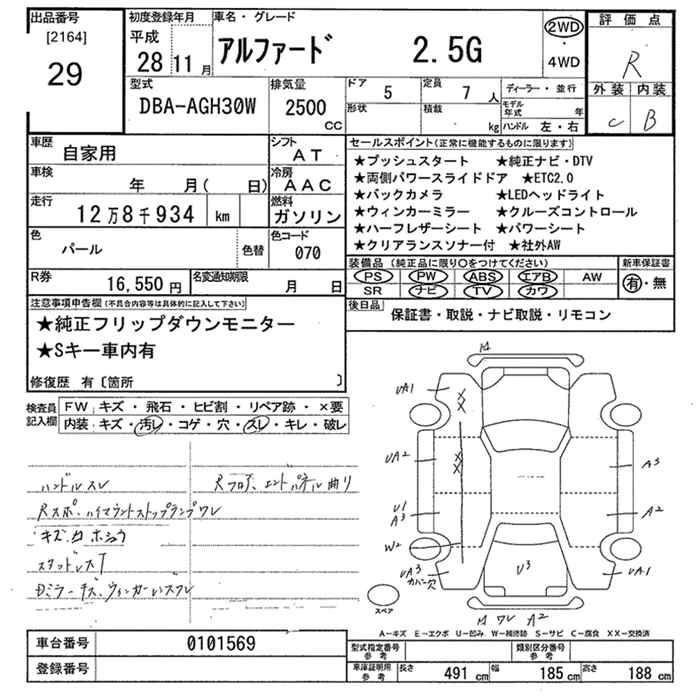 出品番号
[2164]
29
初度登録年月
平成
28 11 月
車名・グレード
アルファード 2.5G
2WD
・
4WD
評価点
R
外装 内装
C B
型式
DBA-AGH30W
排気量
2500
CC
ドア 5
定員 7 人
形状
積載 kg
ディーラー・並行
モデル年式 年
ハンドル 左・右
車歴
自家用
シフト
AT
車検
年 月( 日)
冷房
AAC
走行
12万8千934 km
燃料
ガソリン
色
パール
色替
色コード
070
R券
16,550 円
名変通知期限
月 日
セールスポイント(正常に機能するものに限ります)
★プッシュスタート ★純正ナビ・DTV
★両側パワースライドドア ★ETC2.0
★バックカメラ ★LEDヘッドライト
★ウィンカーミラー ★クルーズコントロール
★ハーフレザーシート ★パワーシート
★クリアランスソナー付 ★社外AW
装備品(純正品に限り○をつけてください)
PS PW ABS エアB AW
SR ナビ TV カワ
新車保証書
有・無
後日品
保証書・取説・ナビ取説・リモコン
注意事項申告欄(不具合内容等は具体的に記入して下さい)
★純正フリップダウンモニター
★Sキー車内有
修復歴 有〔箇所 〕
検査員
記入欄
FW キズ・飛石・ヒビ割・リペア跡・×要
内装 キズ・汚レ・コゲ・穴・スレ・キレ・破レ
ハンドルスレ
Rフロア、エンドパネル曲り
Rスポ・ハイマウントストップランプワレ
スタッドレスT
UA1
UA2
U1
A3
W2
UA3
カバー穴
XX
XX
A3
A2
UA1
U3
ワレ A2
スペア
A−キズ E−エクボ U−凹み W−補修跡 S−サビ C−腐食 XX−交換済
車台番号
0101569
登録番号
型式指定番号
参考
類別区分番号
参考
車庫証明用
参考
長さ 491 cm 幅 185 cm 高さ 188 cm